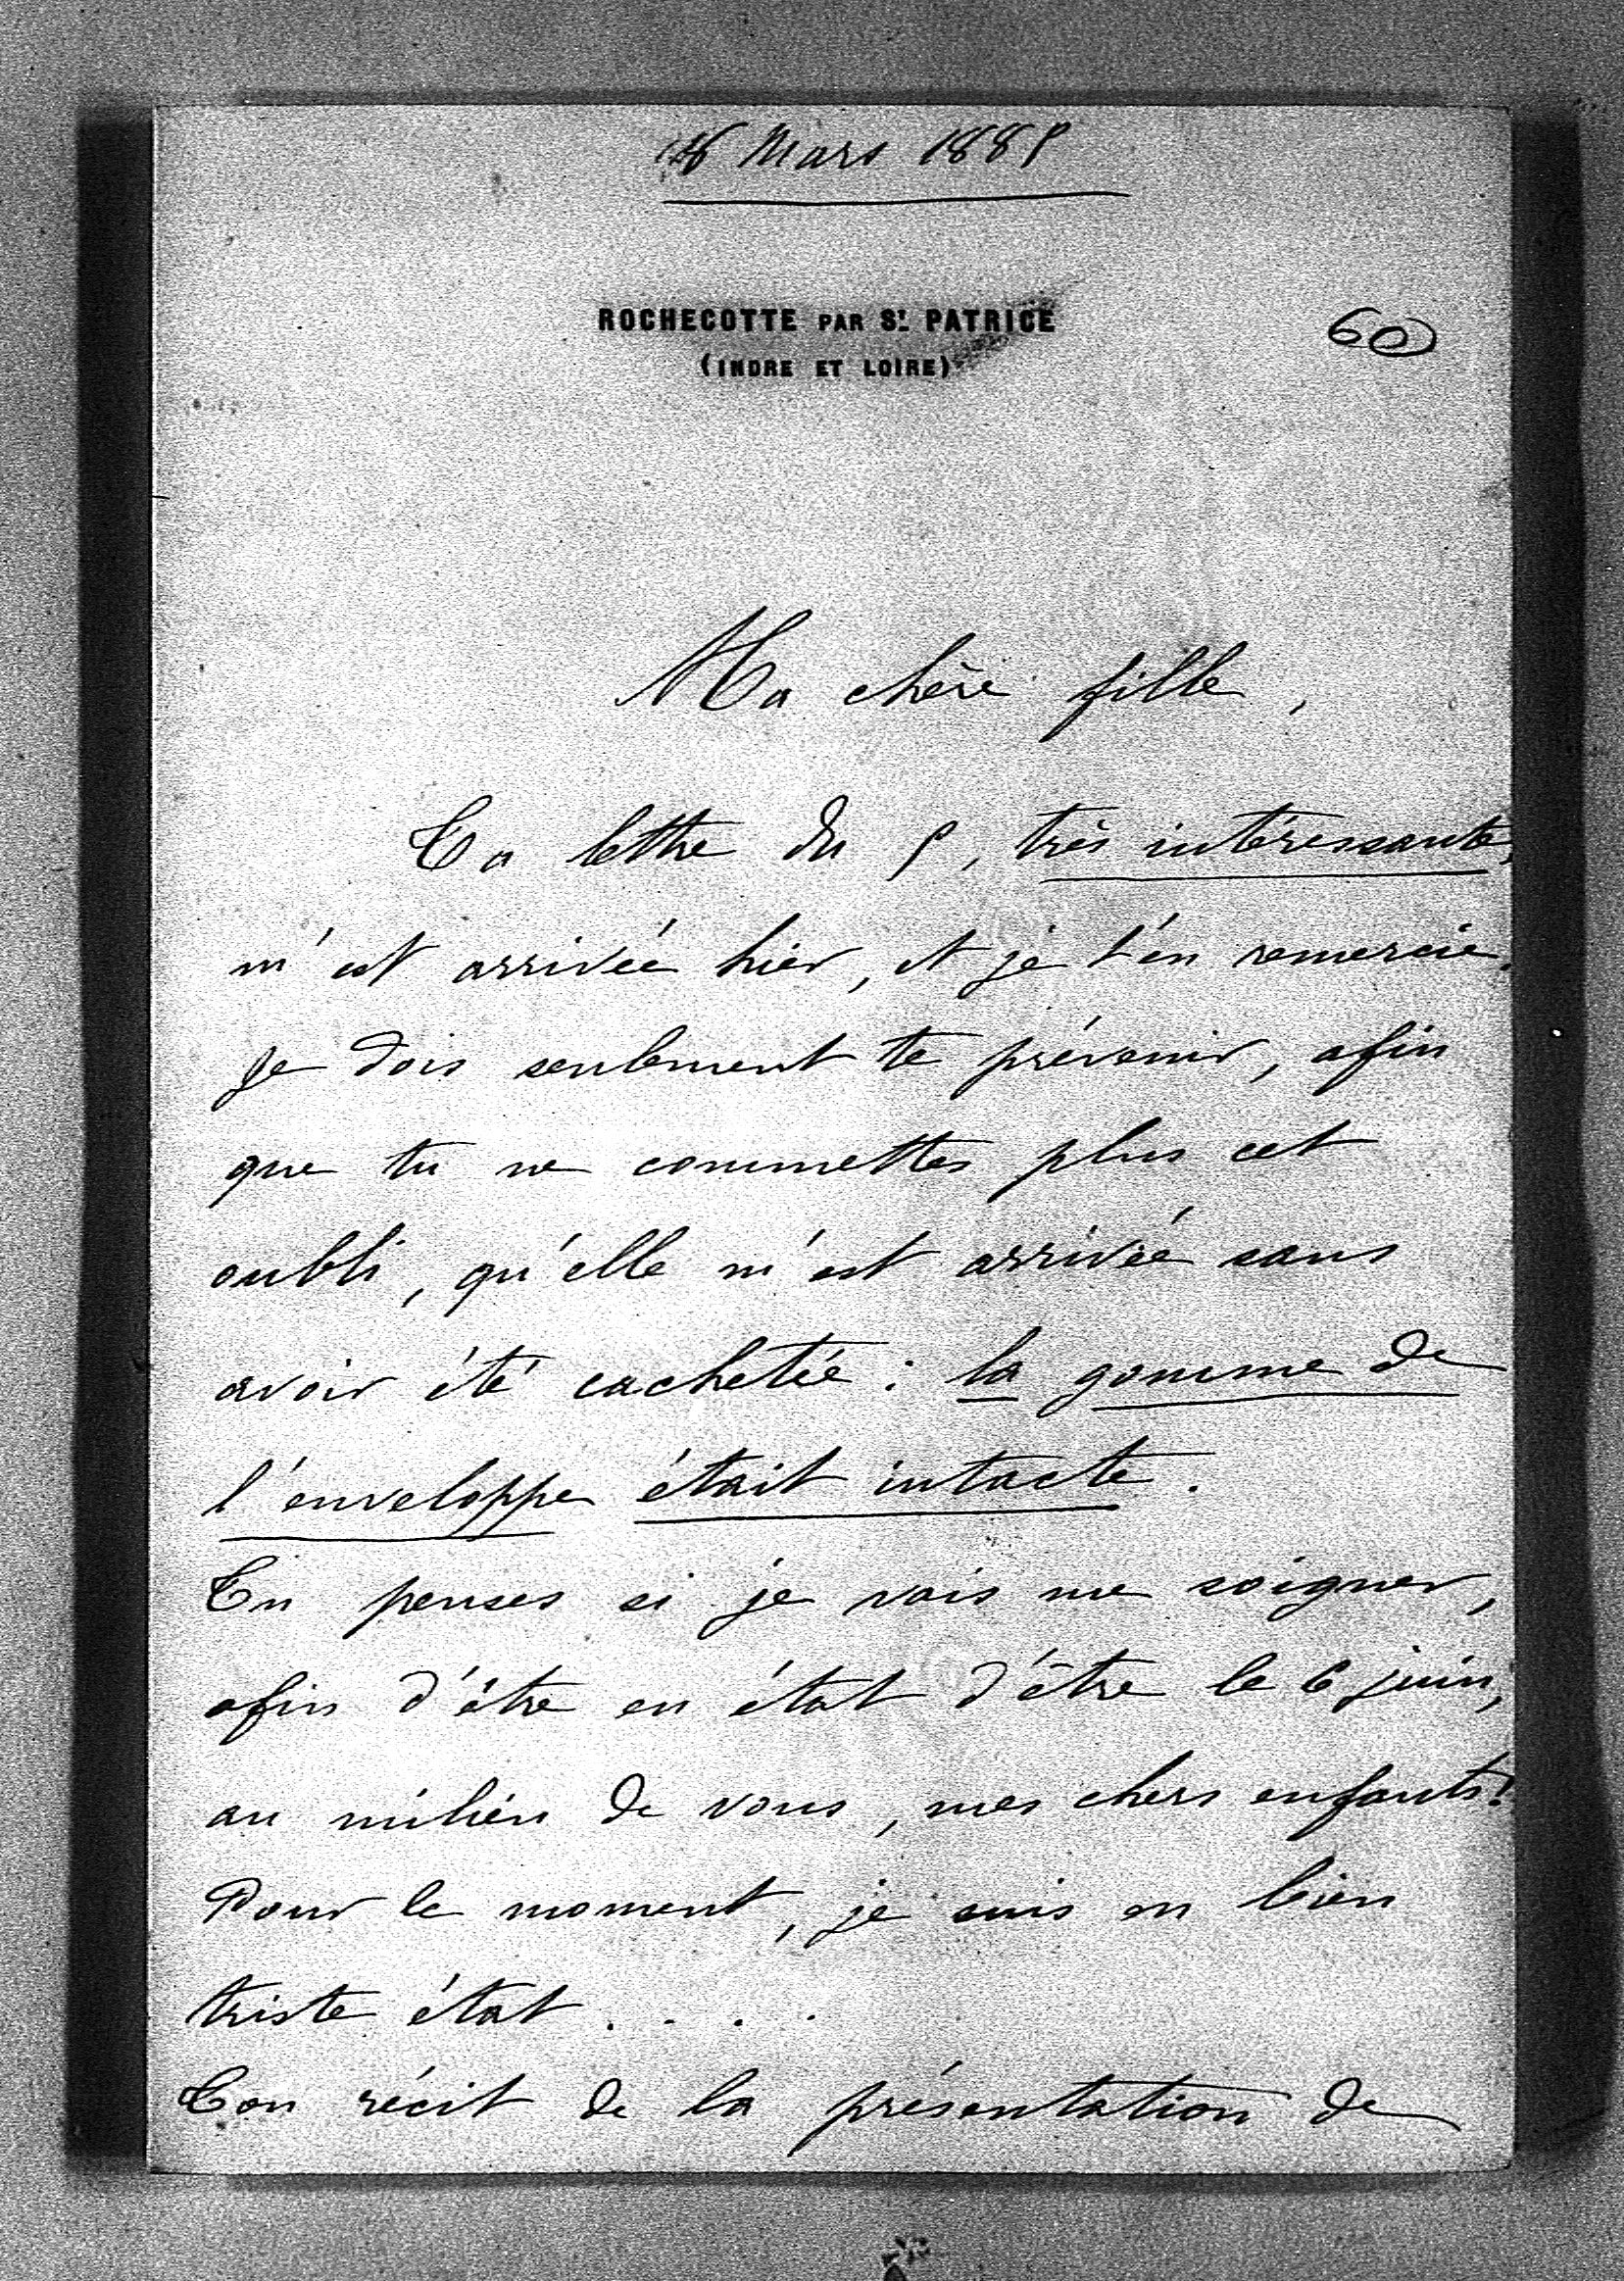 Mars 188
ROCHECOTTE PAR ST. PATRICE
(INDRE ET LOIRE)
60
Ma chère fille,
Ta lettre du 9, très intéressante,
m'est arrivée hier, et je t'en remercie.
Je dois seulement te prévenir, afin
que tu ne commettes plus cet
oubli, qu'elle m'est arrivée sans
avoir été cachetée : la gomme de
l'enveloppe était intacte.
Tu penses si je vais me soigner,
afin d'être en état d'être le 6 juin,
au milieu de vous, mes chers enfants!
Pour le moment, je suis en bien
triste état . . . .
Ton récit de la présentation de